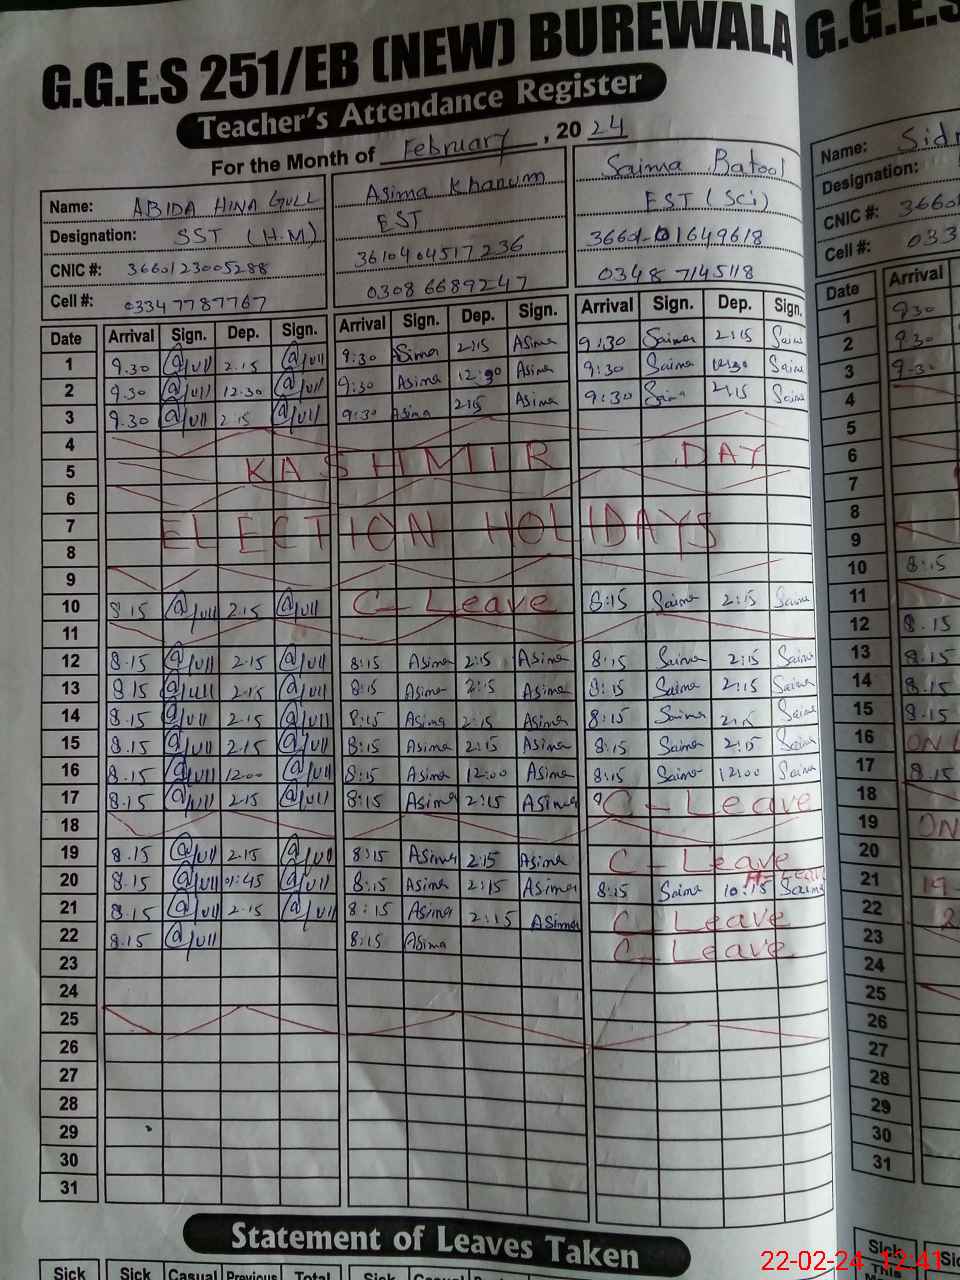 G.G.E.S 251/EB (NEW) BUREWALA
G.G.E.S
Teacher's Attendance Register
For the Month of February, 2024
Name: ABIDA HINA GULL Asima Khanum Saima Batool
Designation: SST (H.M) EST EST (Sci)
CNIC #: 3660123005288 3610404517236
Cell #: 03347787767 03086689247 03487145118
Name:
Designation:
CNIC #: 3660
Cell #: 033
Date Arrival Sign. Dep. Sign. Arrival Sign. Dep. Sign. Arrival Sign. Dep. Sign.
1 9.30 @Jull 2.15 @Jull 9:30 Asima 2:15 Asima 9:30 Saima 2:15 Saima
2 9.30 @Jull 12.30 @Jull 9:30 Asima 12:30 Asima 9:30 Saima 12:30 Saima
3 9.30 @Jull 2.15 @Jull 9:30 Asima 2:15 Asima 9:30 Saima 2:15 Saima
4
5 KASHMIR DAY
6
7 ELECTION HOLIDAYS
8
9
10 8.15 @Jull 2.15 @Jull C-Leave 8:15 Saima 2:15 Saima
11
12 8.15 @Jull 2.15 @Jull 8:15 Asima 2:15 Asima 8:15 Saima 2:15 Saima
13 8.15 @Jull 2.15 @Jull 8:15 Asima 2:15 Asima 8:15 Saima 2:15 Saima
14 8.15 @Jull 2.15 @Jull 8:15 Asima 2:15 Asima 8:15 Saima 2:15 Saima
15 8.15 @Jull 2.15 @Jull 8:15 Asima 2:15 Asima 8:15 Saima 2:15 Saima
16 8.15 @Jull 12.00 @Jull 8:15 Asima 12:00 Asima 8:15 Saima 12:00 Saima
17 8.15 @Jull 2.15 @Jull 8:15 Asima 2:15 Asima C-Leave
18
19 8.15 @Jull 2.15 @Jull 8:15 Asima 2:15 Asima C-Leave
20 8.15 @Jull 01:45 @Jull 8:15 Asima 2:15 Asima 8:15 Saima 10:15 Saima
21 8.15 @Jull 2.15 @Jull 8:15 Asima 2:15 Asima C-Leave
22 8.15 @Jull 8:15 Asima C-Leave
23
24
25
26
27
28
29
30
31
Date Arrival
1 9.30
2 9.30
3 9.30
4
5
6
7
8
9
10 8:15
11
12 8.15
13 8.15
14 8.15
15 8.15
16
17 8.15
18
19
20
21
22
23
24
25
26
27
28
29
30
31
Statement of Leaves Taken
Sick Sick Casual Previous Total Sick
Sick
This
22-02-24 12:41